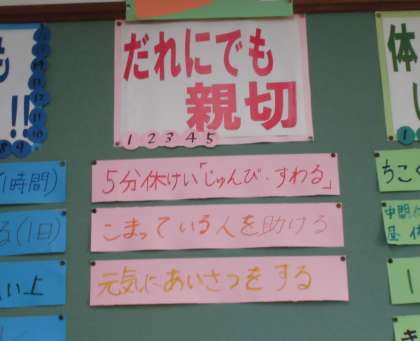 だれにでも
親切
1 2 3 4 5
5分休けい「じゅんび・すわる」
こまっている人を助ける
元気にあいさつをする
も
!!
8 9 10
1時間)
る(1日)
い上
体
ちこく
中間休
基 体
1